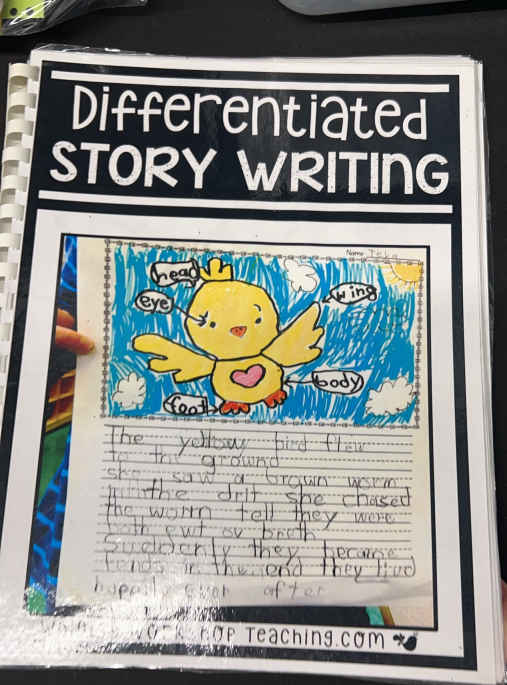 Differentiated
STORY WRITING
Name
head
eye
wing
body
foot
The yellow bird flew
to the ground
she saw a brown worm
in the drit she chased
the worm tell they were
both owt ov breth
Suddenly they became
fends in the end they live
happily ever after
TEACHING.COM